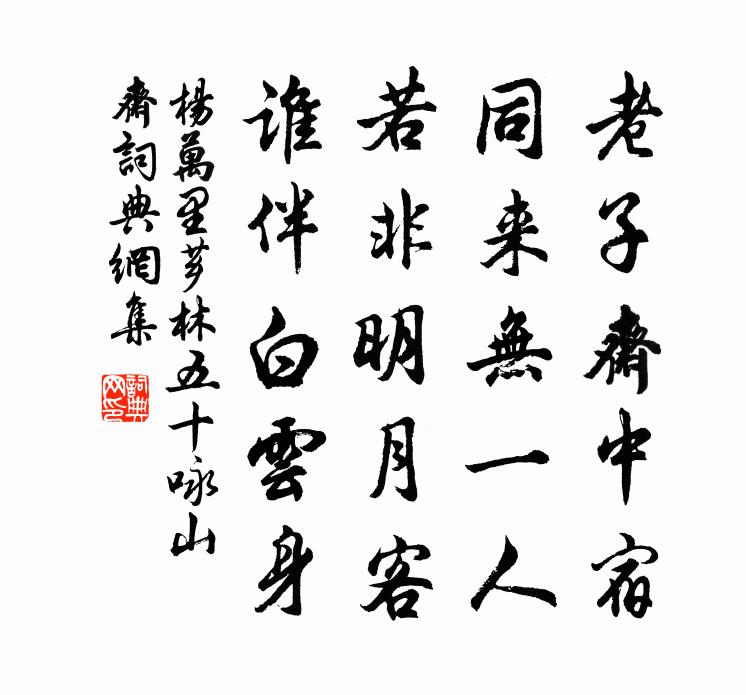 老子齋中宿
同来無一人
若非明月客
誰伴白雲身
楊萬里芗林五十咏山
齋詞典網集
詞典网印